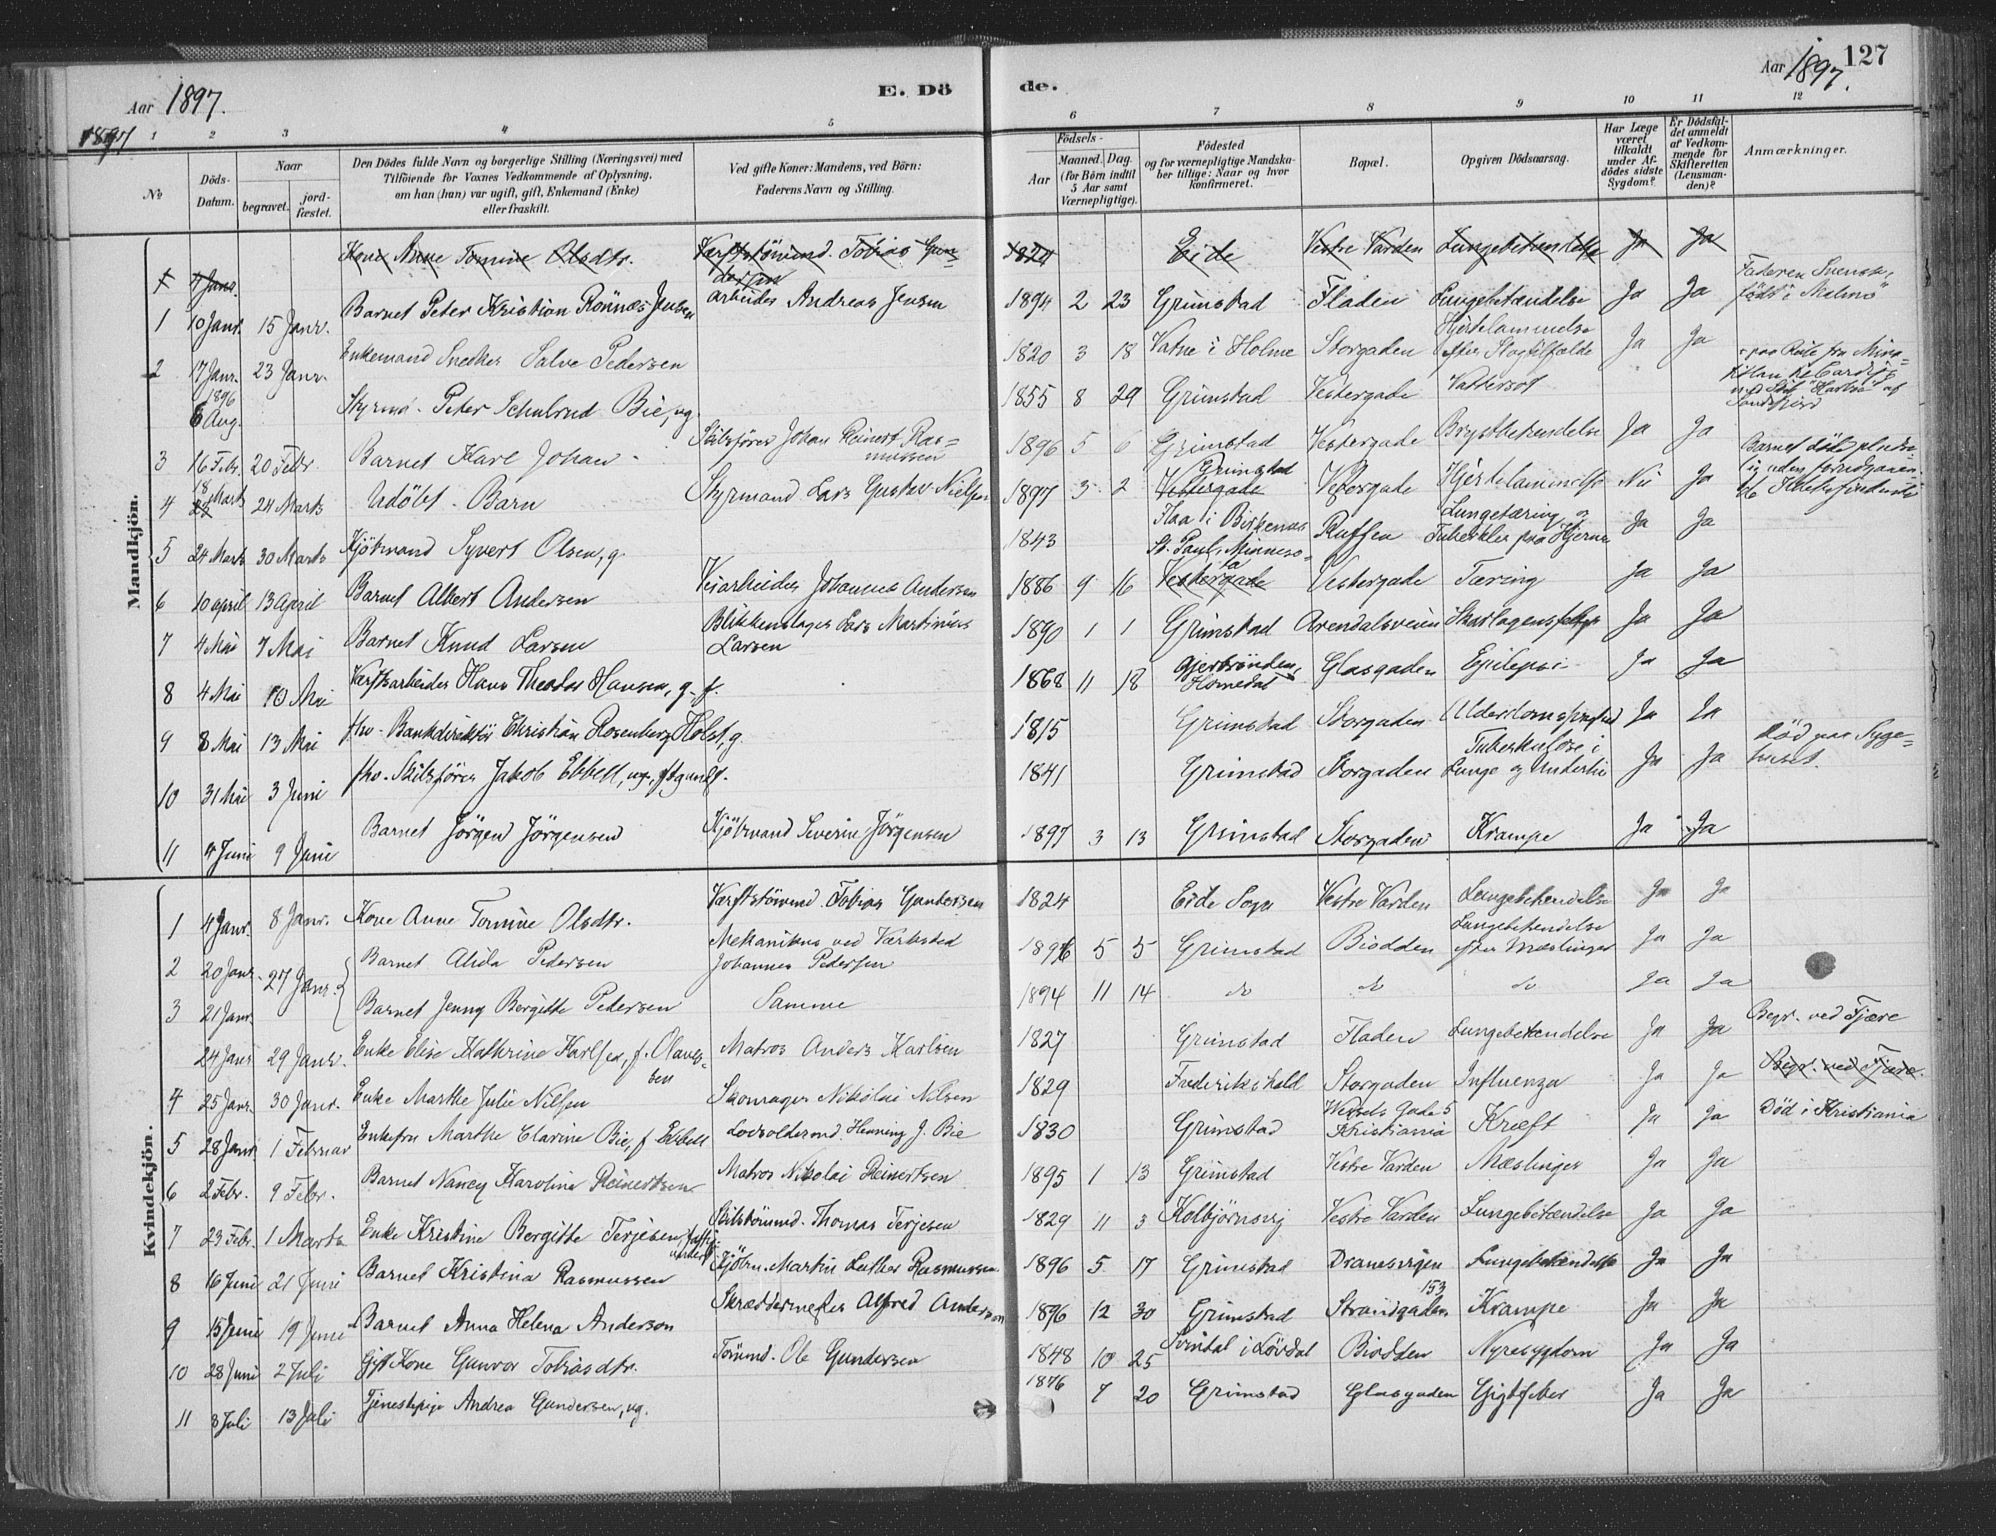 Aar 1897. E. Dö de. Aar 1897. 127
1897
1 2 3 4 5 6 7 8 9 10 11 12
№ Döds-Datum. Naar begravet. jord-fæstet. Den Dödes fulde Navn og borgerlige Stilling (Næringsvei) med Tilföiende for Voxnes Vedkommende af Oplysning, om han (hun) var ugift, gift, Enkemand (Enke) eller fraskilt. Ved gifte Koner: Mandens, ved Börn: Faderens Navn og Stilling. Födsels- Aar Maaned. Dag. (for Börn indtil 5 Aar samt Værnepligtige). Födested og for værnepligtige Mandska-ber tillige: Naar og hvor konfirmeret. Bopæl. Opgiven Dödsaarsag. Har Læge været tilkaldt under Af-dödes sidste Sygdom? Er Dödsfal-det anmeldt af Vedkom-mende for Skifteretten (Lensman-den)? Anmærkninger.
Mandkjön.
1 4 Janr. Kone Anne Tomine Olsdtr. Værftstömmd. Tobias Gundersen 1824 Eide Vestre Varden Lungebetændelse Ja Ja
1 10 Janr. 15 Janr. Barnet Peter Kristian Rönnes Jensen Arbeider Andreas Jensen 1894 2 23 Grimstad Fladen Lungebetændelse Ja Ja Faderen Svensk, født i Malmö
2 17 Janr. 23 Janr. Enkemand Snedker Salve Pedersen 1820 3 18 Vatne i Holme Storgaden Hjertelammelse efter Slagtilfælde Ja Ja
1896 6 Aug. Styrmd. Peter Schulrud Bie, ug. 1855 8 29 Grimstad Vestergade Vattersot paa Reise fra til Cardiff af Sandefjord
3 16 Febr. 20 Febr. Barnet Karl Johan Skibsfører Johan Reinert Rasmussen 1896 5 6 Grimstad Vestergade Brystbetændelse Ja Ja
4 18 Marts 24 Marts Udöbt Barn Styrmand Lars Gustav Nielsen 1897 3 2 Grimstad Vestergade Vestergade Hjertelammelse Nei Ja Barnet døde uden
5 24 Marts 30 Marts Kjöbmand Syvert Olsen, g. 1843 Flaa i Birkenes Ruffen Lungetæring og Tuberkler paa Hjernen Ja Ja
6 10 april 13 April Barnet Albert Andersen Veiarbeider Johannes Andersen 1886 9 16 St. Paul, Minnesota Vestergade Vestergade Tæring Ja Ja
7 4 Mai 7 Mai Barnet Knud Larsen Blikkenslager Lars Martinius Larsen 1890 1 1 Grimstad Arendalsveien Skarlagensfeber Ja Ja
8 4 Mai 10 Mai Værftsarbeider Hans Theodor Hansen, g. f. 1868 11 18 Gjerbrönden, Homedal Glasgaden Epilepsi Ja Ja
9 8 Mai 13 Mai fhv. Bankdirektör Christian Rosenberg Holst, g. 1815 Grimstad Storgaden Alderdomssvaghed Ja Ja
10 31 Mai 3 Juni fhv. Skibsfører Jakob Ebbell, ug. 1841 Grimstad Storgaden Tuberkulose i Lunge og Underliv Ja Ja Död paa Sygehuset.
11 4 Juni 9 Juni Barnet Jörgen Jörgensen Kjöbmand Severin Jörgensen 1897 3 13 Grimstad Storgaden Krampe Ja Ja
Kvindekjön.
1 4 Janr. 8 Janr. Kone Anne Tomine Olsdtr. Værftstömmd. Tobias Gundersen 1824 Eide Sogn Vestre Varden Lungebetændelse Ja Ja
2 20 Janr. 27 Janr. Barnet Alida Pedersen Mekanikus ved Værksted Johannes Pedersen 1896 5 5 Grimstad Biodden Lungebetændelse efter Mæslinger Ja Ja
3 21 Janr. Barnet Jenny Bergitte Pedersen Samme 1894 11 14 do do do Ja Ja
24 Janr. 29 Janr. Enke Elise Kathrine Karlsen, f. Olavessen Matros Anders Karlsen 1827 Grimstad Fladen Lungebetændelse Ja Ja Begr. ved Fjære
4 25 Janr. 30 Janr. Enke Marthe Julie Nilsen Skomager Nikolai Nilsen 1829 Frederikshald Storgaden Influenza Ja Ja Begr. ved Fjære.
5 28 Janr. 1 Februar Enkefru Marthe Clarine Bie, f. Ebbell Lodsoldermd. Henning J. Bie 1830 Grimstad Wessels Gade 5 Kristiania Kræft Ja Ja Död i Kristiania
6 2 Febr. 9 Febr. Barnet Nancy Karoline Reinertsen Matros Nikolai Reinertsen 1895 1 13 Grimstad Vestre Varden Mæslinger Ja Ja
7 23 Febr. 1 Marts Enke Kristine Bergitte Terjesen Skibstömmd. Thomas Terjesen 1829 11 3 Kolbjörnsvig Vestre Varden Lungebetændelse Ja Ja
8 16 Juni 21 Juni Barnet Kristina Rasmussen Kjöbm. Martin Luther Rasmussen 1896 5 17 Grimstad Lungebetændelse Ja Ja
9 15 Juni 19 Juni Barnet Anna Helena Anderson Skræddermester Alfred Anderson 1896 12 30 Grimstad Strandgaden 153 Krampe Ja Ja
10 28 Juni 2 Juli Gift Kone Gunvor Tobiasdtr. Tömmd. Ole Gundersen 1848 10 25 Svindal i Lövdal Biodden Nyresygdom Ja Ja
11 8 Juli 13 Juli Tjenestepige Andrea Gundersen, ug. 1876 7 20 Grimstad Glasgaden Gigtfeber Ja Ja